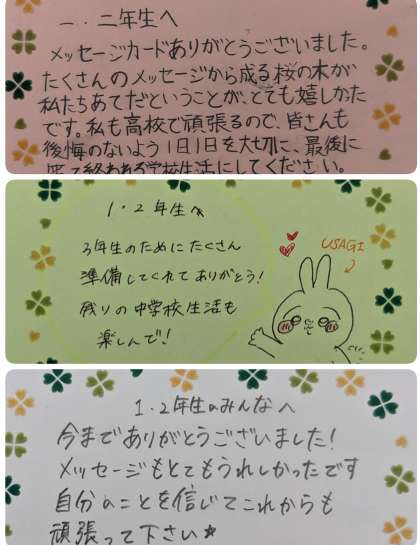 一・二年生へ
メッセージカードありがとうございました。
たくさんのメッセージから成る桜の木が
私たちあてだということが、とても嬉しかった
です。私も高校で頑張るので、皆さんも
後悔のないよう1日1日を大切に、最後に
笑って終われる学校生活にしてください。
1・2年生へ
3年生のためにたくさん
準備してくれてありがとう!
残りの中学校生活も
楽しんで!
USAGI
1・2年生のみんなへ
今までありがとうございました!
メッセージもとてもうれしかったです
自分のことを信じてこれからも
頑張って下さい★